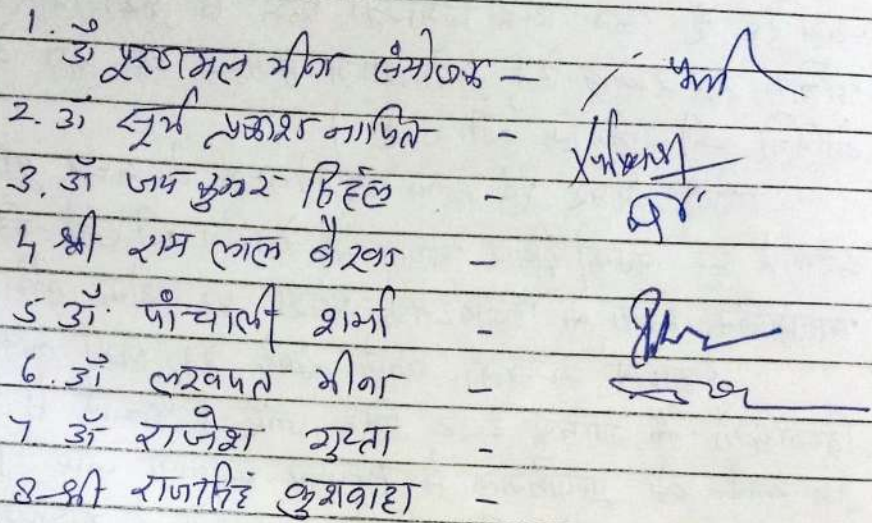 1. डॉ पूरणमल मीना संयोजक -
2. डॉ सूर्य प्रकाश नापित -
3. डॉ जय कुमार -
4 श्री राम लाल बैरवा -
5 डॉ. पांचाली शर्मा -
6. डॉ लखपत मीना -
7 डॉ राजेश गुप्ता -
8 श्री राजसिंह कुशवाहा -